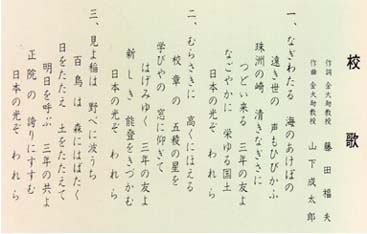 校歌
作詞 金大助教授 藤田福夫
作曲 金大助教授 山下成太郎
一、なぎわたる 海のあけぼの
遠き世の 声もひびかふ
珠洲の崎 清きなぎさに
つどい来る 三年の友よ
なごやかに 栄ゆる国土
日本の光ぞ われら
二、むらさきに 高くにほえる
校章の 五稜の星を
学びやの 窓に仰ぎて
はげみゆく 三年の友よ
新しき 能登をきづかむ
日本の光ぞ われら
三、見よ稲は 野べに波うち
百鳥は 森にはばたく
日をたたえ 土をたたえて
明日を呼ぶ 三年の共よ
正院の 誇りにすすむ
日本の光ぞ われら